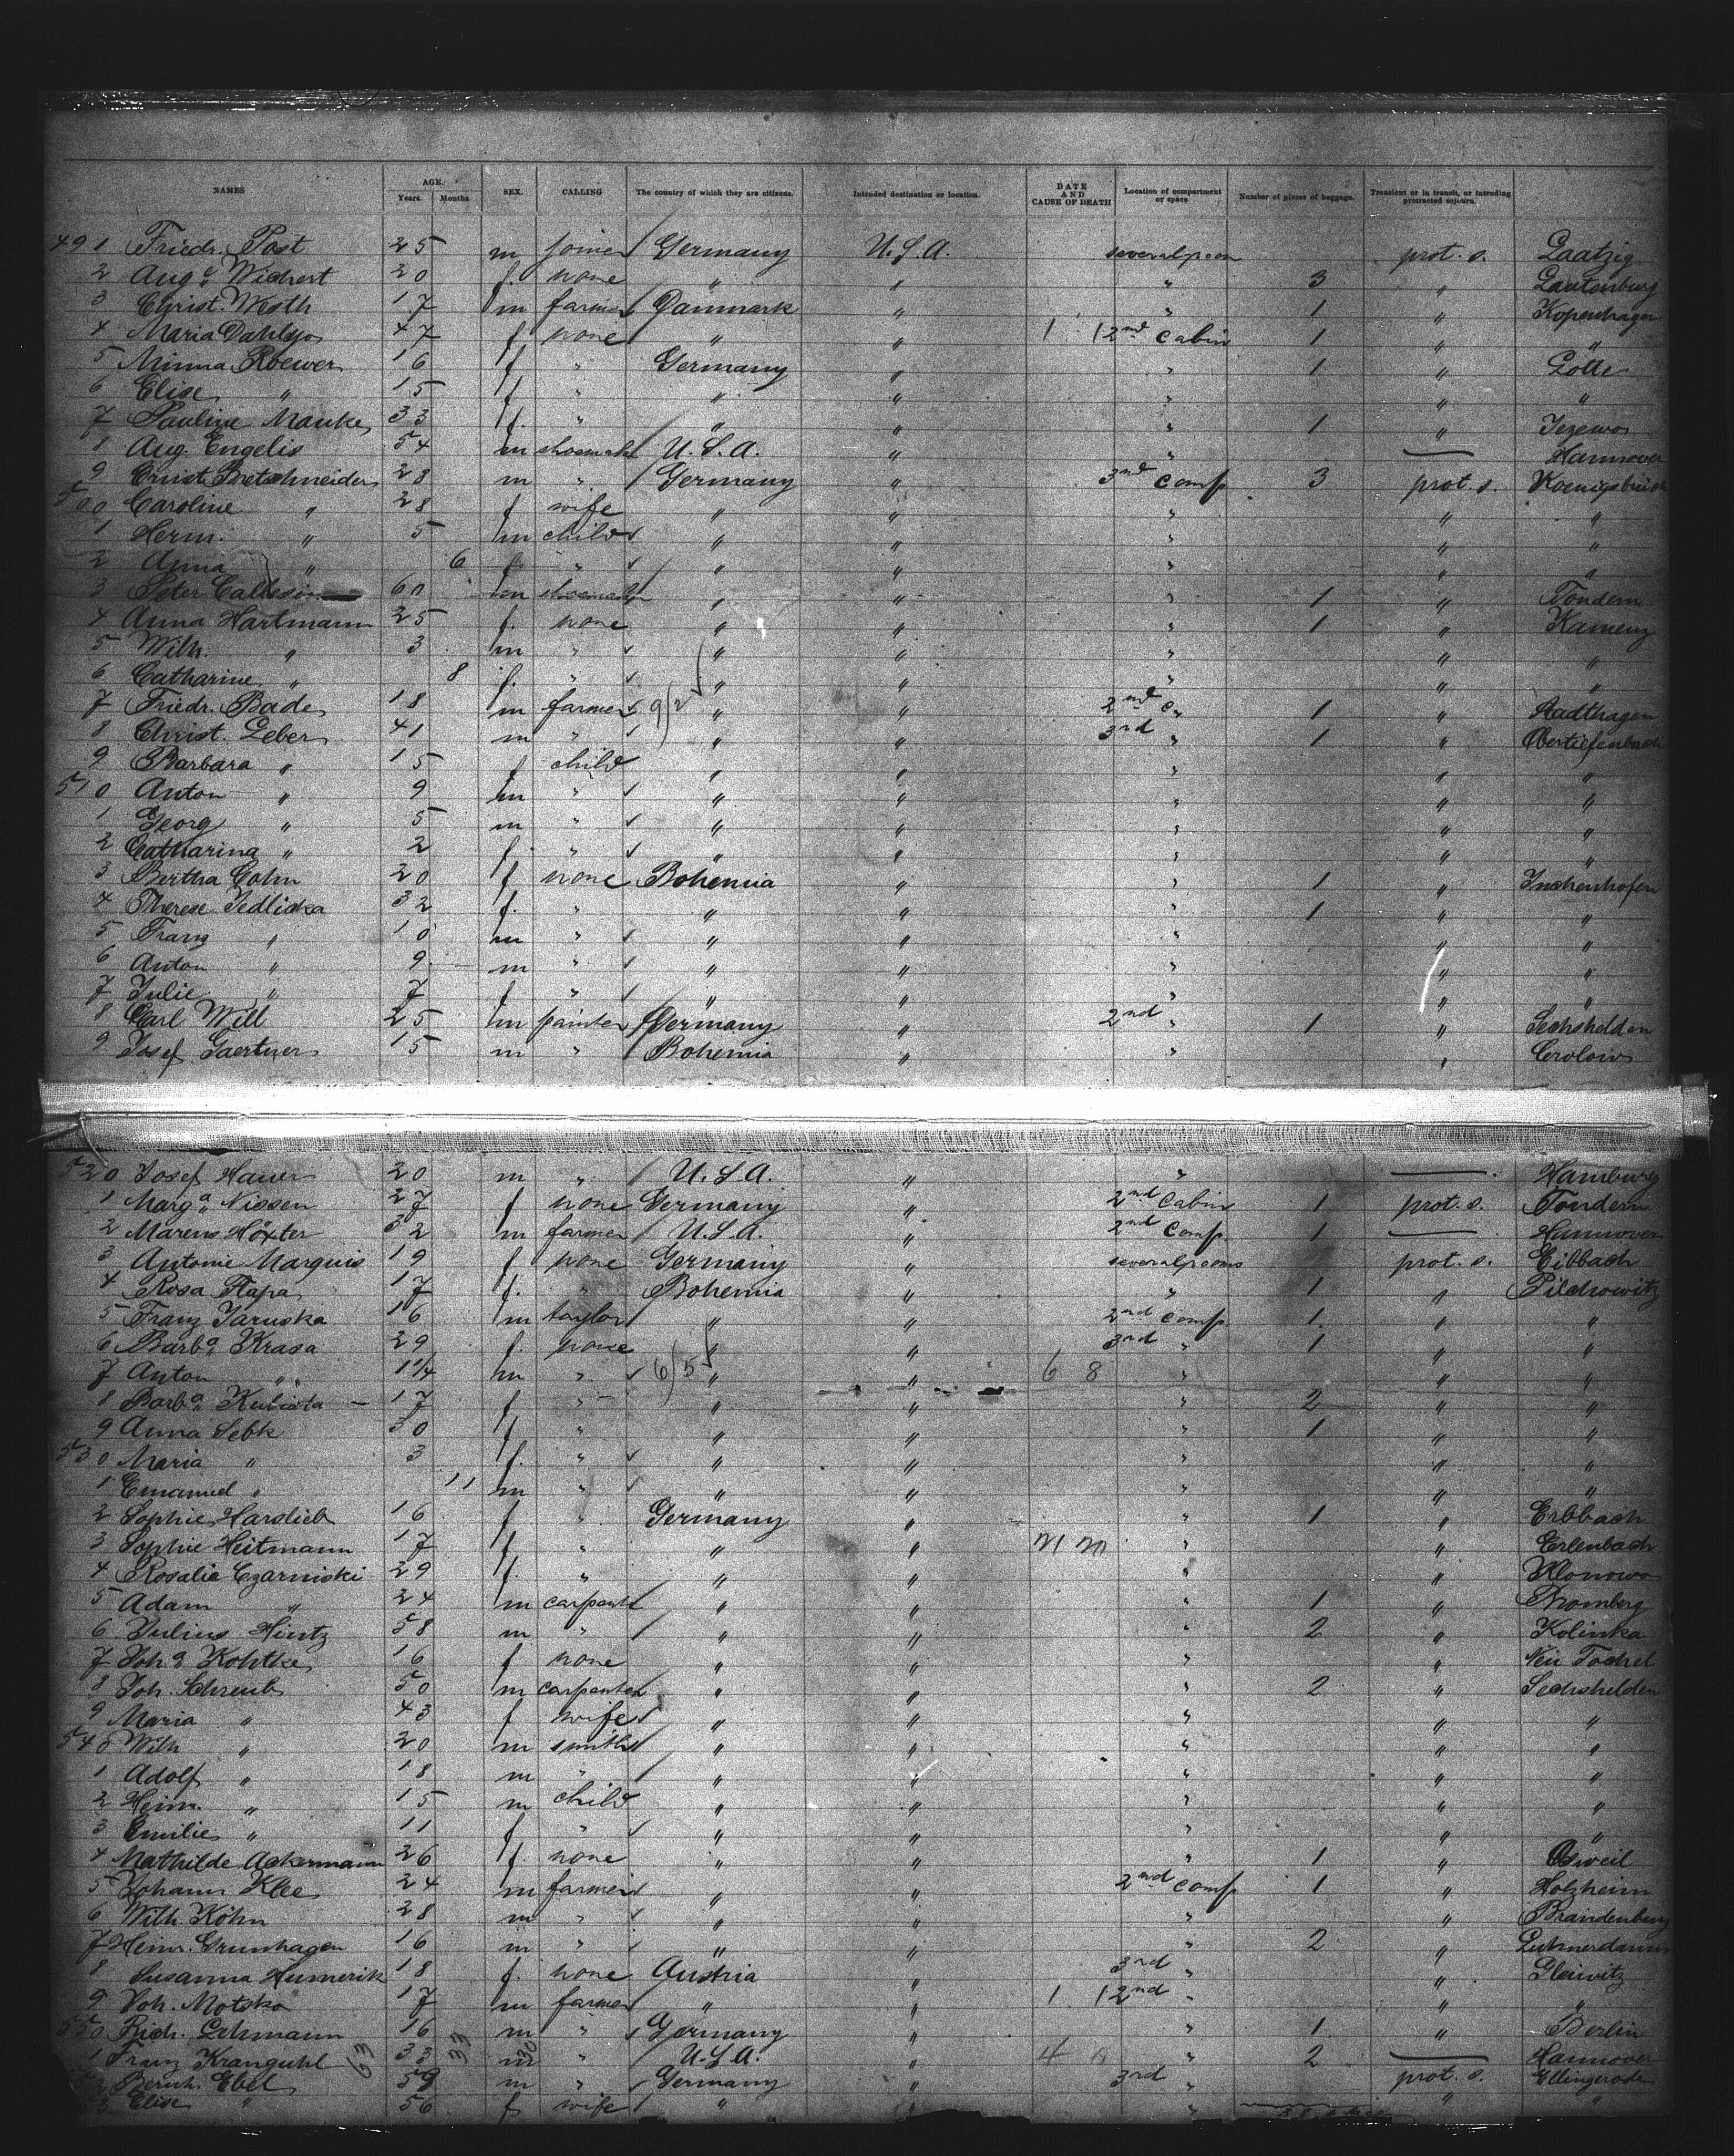 NAMES AGE. Years. Months. SEX. CALLING The country of which they are citizens. Intended destination or location. DATE AND CAUSE OF DEATH Location of compartment or space Number of pieces of baggage. Transient or in transit, or intending protracted sojourn.
491 Friedr. Post 25 m joiner Germany U.S.A. prot. s. Laatzig
2 Aug.a Wichert 20 f. none " " " 3 " Lautenburg
3 Christ. Westh 17 m farmer Danmark " " 1 " Kopenhagen
4 Maria 47 f none " " 1 1 2nd Cabin 1 " "
5 Minna Roewer 16 f " Germany " " 1 "
6 Elise " 15 f " " " " " "
7 Pauline Manke 33 f. " " " " 1 " Jezewo
8 Aug. Engelis 54 m shoemak U.S.A. " " — Hannover
9 Ernst Bretschneider 28 m " Germany " 3rd Comp 3 prot. s. Koenigsbrück
500 Caroline " 28 f wife " " " " "
1 Herm. " 5 m child " " " " "
2 Anna " 6 f " " " " " "
3 Peter 60 m shoemaker " " " 1 " Tondern
4 Anna Hartmann 25 f. none " " " 1 " Kamenz
5 Wilh. " 3 m " " " " " "
6 Catharine " 8 f. " " " " " "
7 Friedr. Bade 18 m farmer 9/2 " " 2nd C " 1 " Stadthagen
8 Christ. Leber 41 m " " " 3rd " 1 " Obertiefenbach
9 Barbara " 15 f child " " " " "
510 Anton " 9 m " " " " " "
1 Georg " 5 m " " " " " "
2 Catharina " 2 f. " " " " " "
3 Bertha Cohn 20 f none Bohemia " " 1 " Inchenhofen
4 Therese Jedlicka 32 f. " " " " 1 " "
5 Franz " 10 m " " " " " "
6 Anton " 9 m " " " " " "
7 Julie " 7 f " " " " " "
8 Carl Will 25 m painter Germany " 2nd " 1 " Sechshelden
9 Josef Gaertner 15 m " Bohemia " " "
520 Josef Hauer 20 m " U.S.A. " " — Hamburg
1 Marg.a Nissen 27 f none Germany " 2nd Cabin 1 prot. s. Tondern
2 Höxter 32 m farmer U.S.A. " 2nd Comp. 1 — Hannover
3 Antonie Marquis 19 f none Germany " prot. s. Eibbach
4 Rosa 17 f. " Bohemia " " 1 " Pilchowitz
5 Franz Jaruska 16 m taylor " " 2nd comp 1 " "
6 Barb.a Krasa 29 f. none " " 3rd " 1 " "
7 Anton " 1 1/4 m " 6/5 " " 6 8 " " "
8 Barb.a Kubista — 17 f " " " " 2 " "
9 Anna Sebk 30 f " " " " 1 " "
530 Maria " 3 f. " " " " " "
1 Emanuel " 11 m " " " " " "
2 Sophie Harslieb 16 f " Germany " " 1 "
3 Sophie Heitmann 17 f " " " " " Erlenbach
4 Rosalie Czarniski 29 f. " " " " " Klonowo
5 Adam " 24 m carpent " " " 1 " Bromberg
6 Julius Hintz 58 m " " " " 2 " Kolinka
7 Joh.a Kohtke 16 f none " " " " Neu Tochel
8 Joh. Schreub 50 m carpenter " " " 2 " Sechshelden
9 Maria " 43 f wife " " " " "
540 Wilh " 20 m smith " " " " "
1 Adolf " 18 m " " " " " "
2 Heinr. " 15 m child " " " " "
3 Emilie " 11 f " " " " " "
4 Mathilde Ackermann 26 f. none " " " 1 " Osweil
5 Johann Klee 24 m farmer " " 2nd comp 1 " Holzheim
6 Wilh Köhn 28 m " " " " " Brandenburg
7 Heinr. Grunhagen 16 m " " " " 2 "
8 Susanna Humerik 18 f. none Austria " 3rd " " Gleiwitz
9 Joh. Motsko 17 m farmer " " 1 1 2nd " " "
550 Rich. Lehmann 16 m " Germany " " 1 " Berlin
1 Franz Kranguhl 33 m " U.S.A. " 4 " 2 — Hannover
2 Bernh. Ebel 59 m " Germany " 3rd " prot. s. Ellingerode
3 Elise " 56 f wife " " " " "
63 33 30